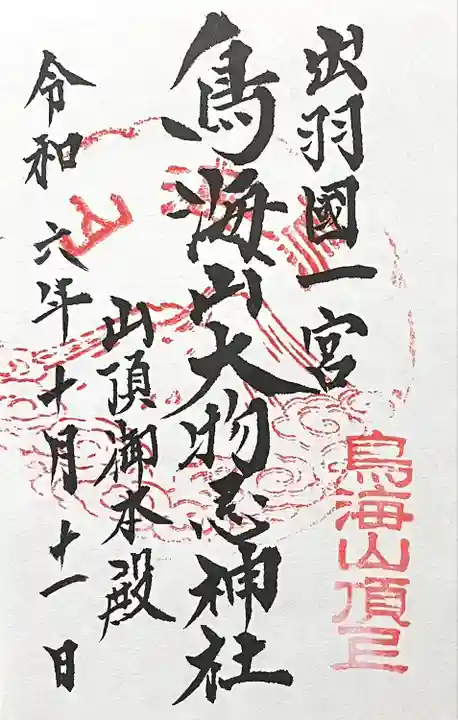 出羽國一宮
鳥海山大物忌神社
山頂御本殿
令和六年十月十一日
鳥海山頂